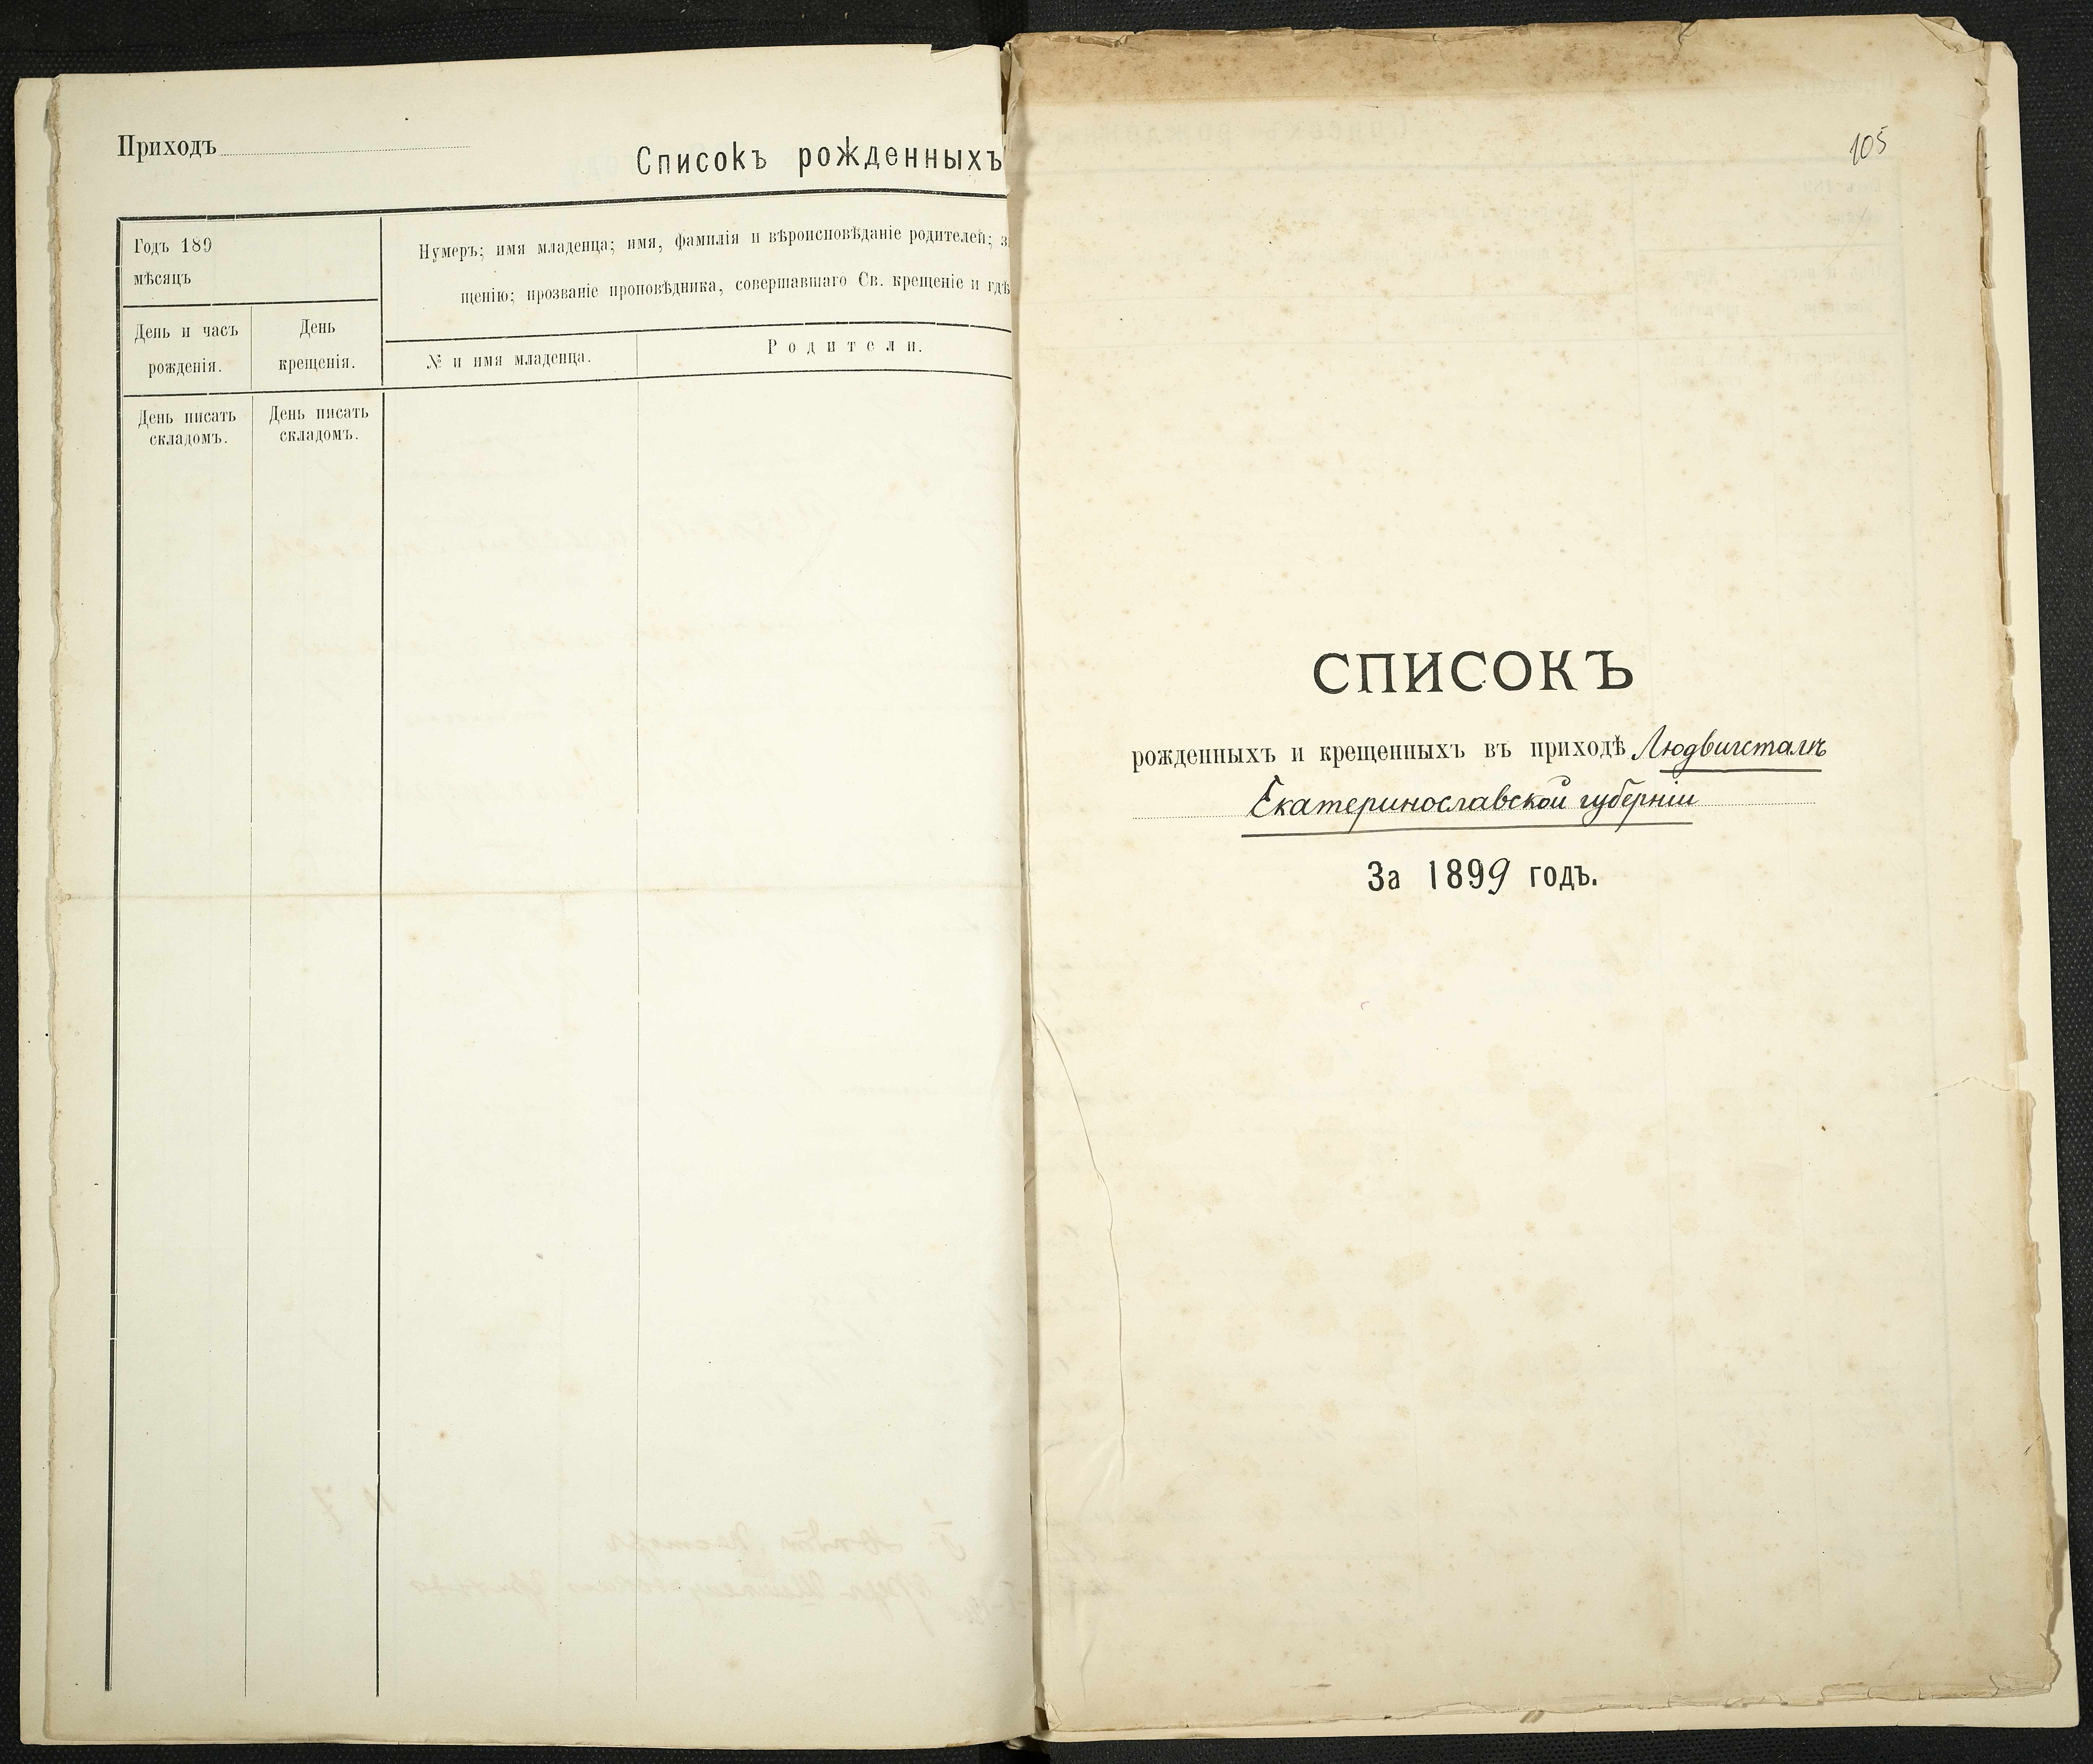 Приходъ
Списокъ рожденныхъ
Годъ 189
мѣсяцъ
Нумеръ; имя младенца; имя, фамилія и вѣроисповѣданіе родителей; з
щенію; прозваніе проповѣдника, совершавшаго Св. крещеніе и гдѣ
День и часъ
рожденія.
День
крещенія.
№ и имя младенца.
Родители.
День писать
складомъ.
День писать
складомъ.
105
СПИСОКЪ
рожденныхъ и крещенныхъ въ приходѣ Людвигсталь
Екатеринославской губерніи
За 1899 годъ.